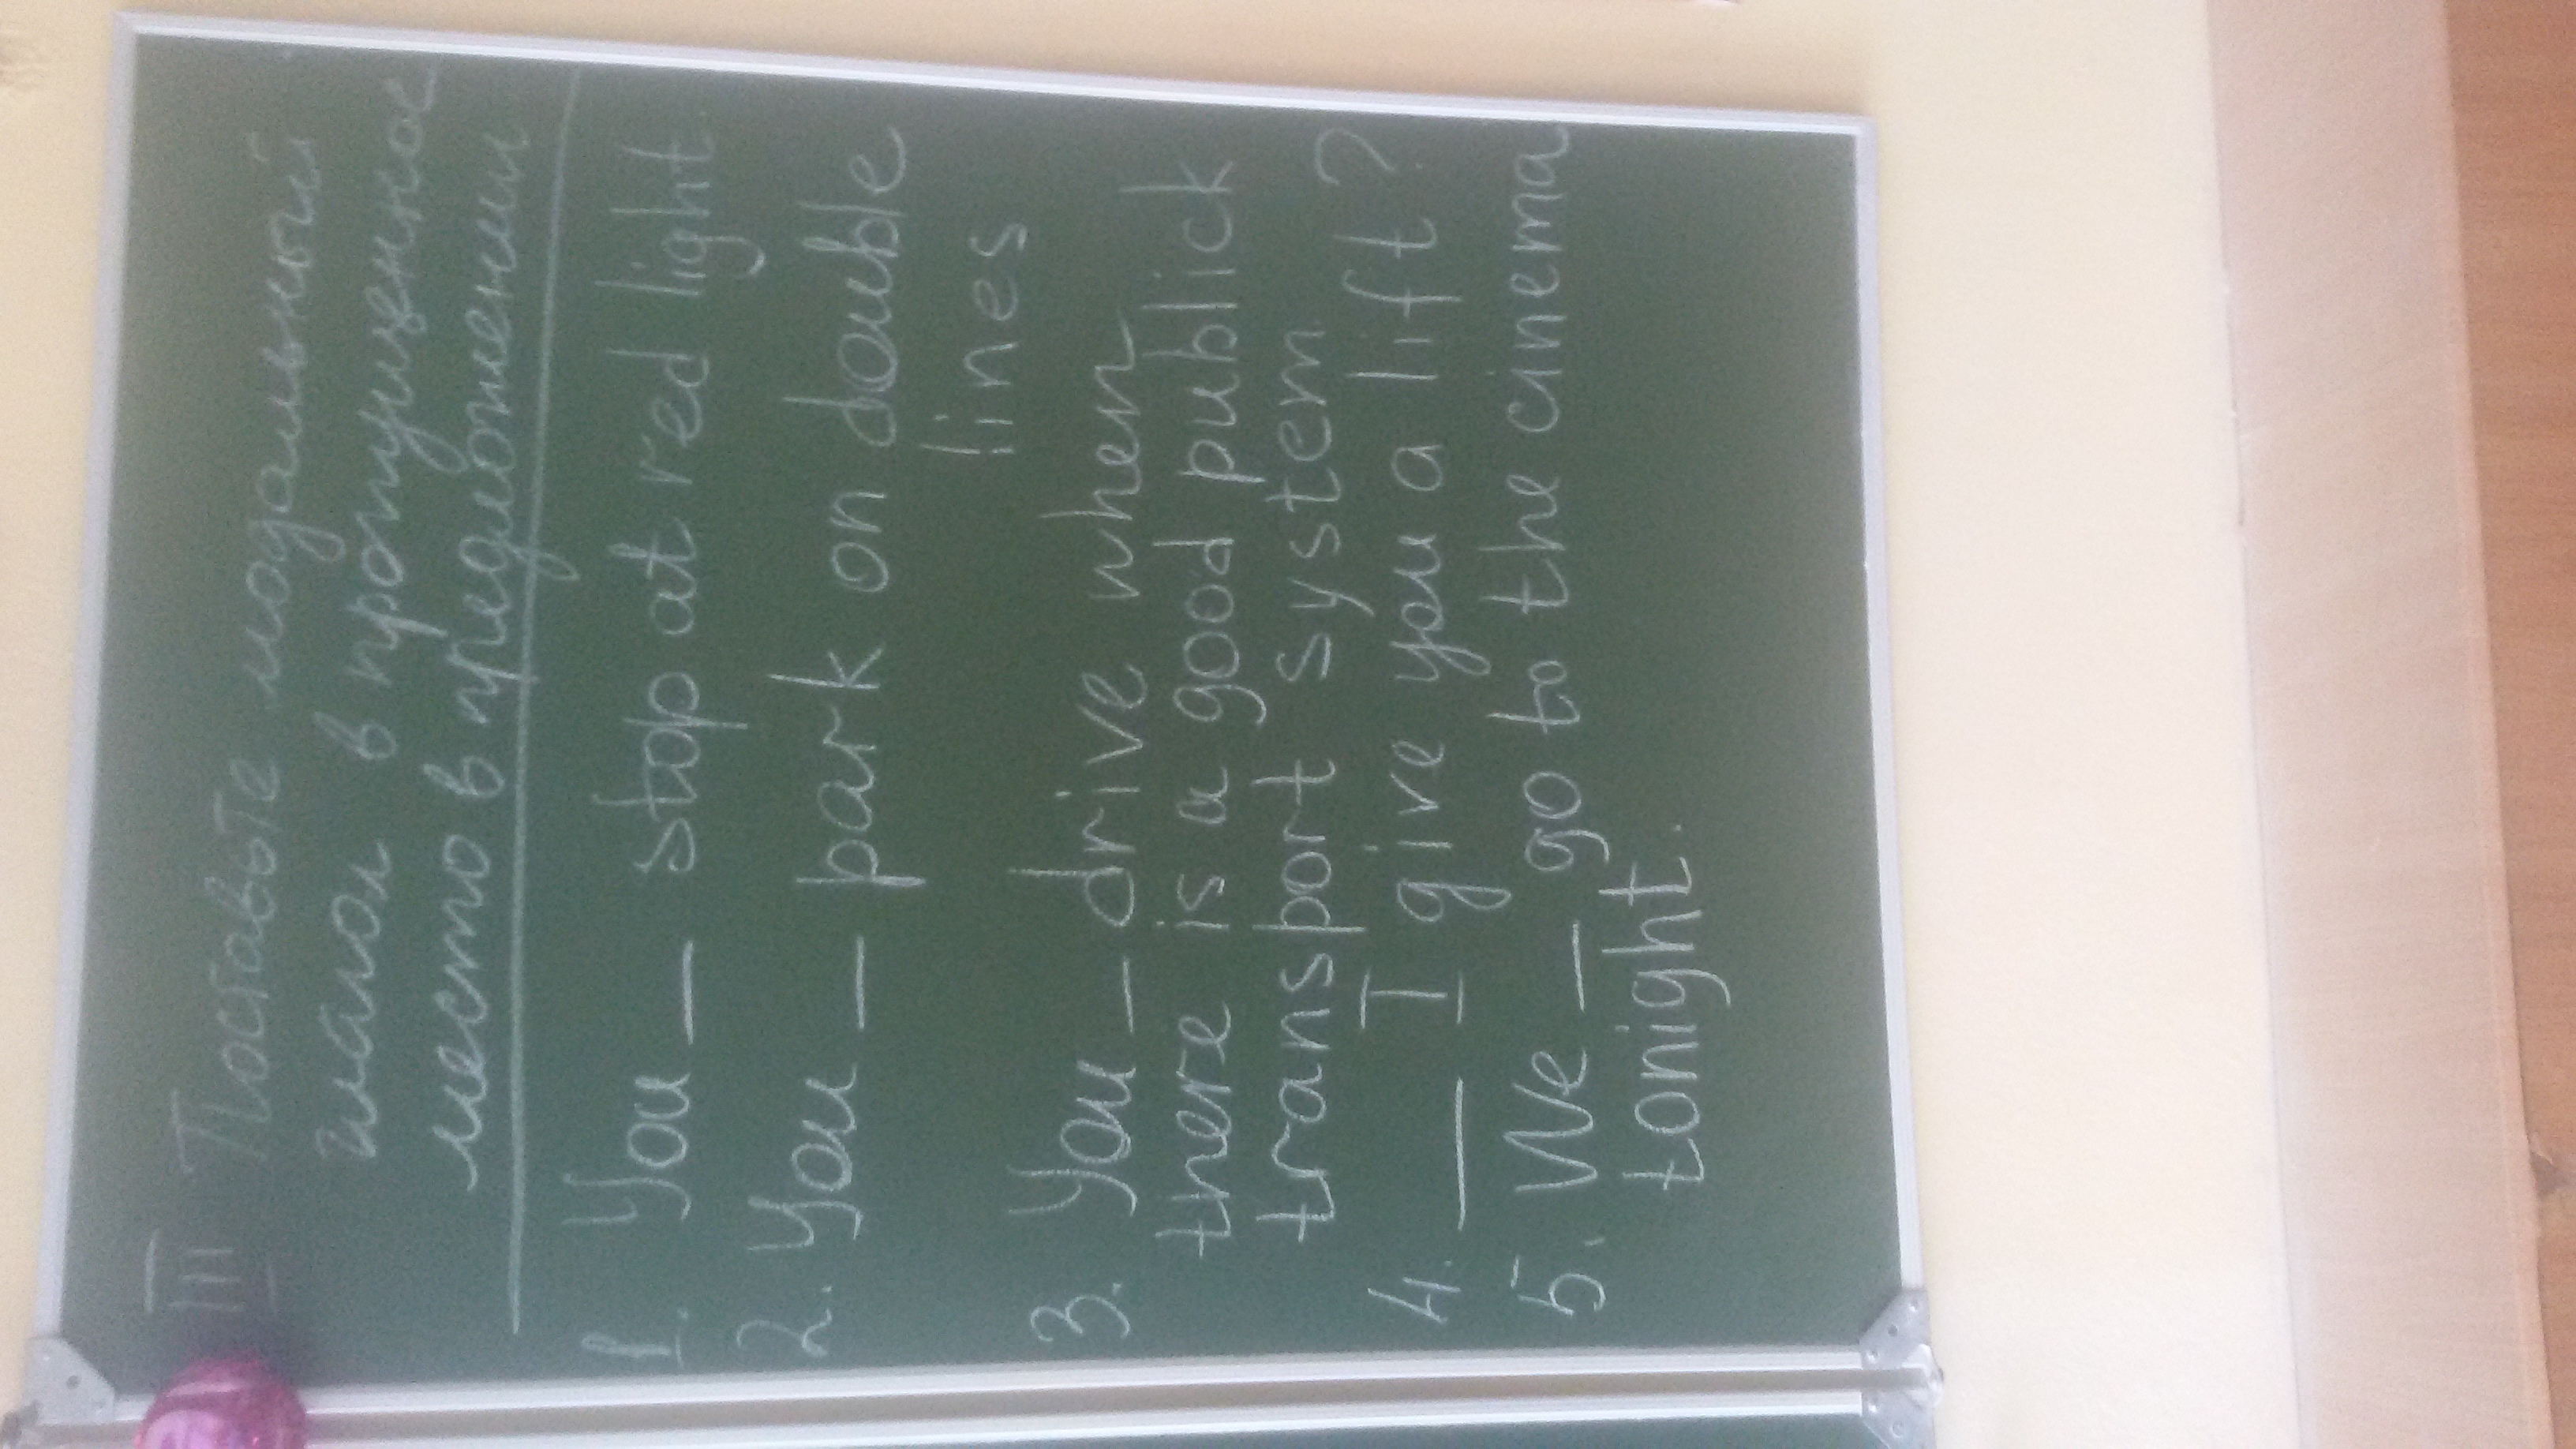 III Поставьте модальный
глагол в пропущенное
место в предложении
1. You — stop at red light.
2. You — park on double
lines
3. You — drive when
there is a good publick
transport system
4. — I give you a lift?
5. We — go to the cinema
tonight.